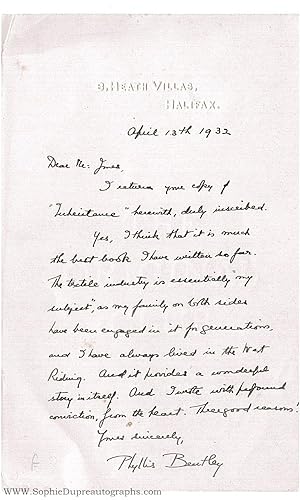 8, HEATH VILLAS,
HALIFAX.
April 13th 1932
Dear Mr. Jones,
I return your copy of
"Inheritance" herewith, duly inscribed.
Yes, I think that it is much
the best book I have written so far.
The textile industry is essentially "my
subject", as my family on both sides
have been engaged in it for generations,
and I have always lived in the West
Riding. And it provides a wonderful
story in itself. And I wrote with profound
conviction, from the heart. Three good reasons!
Yours sincerely,
Phyllis Bentley
www.SophieDupreautographs.com